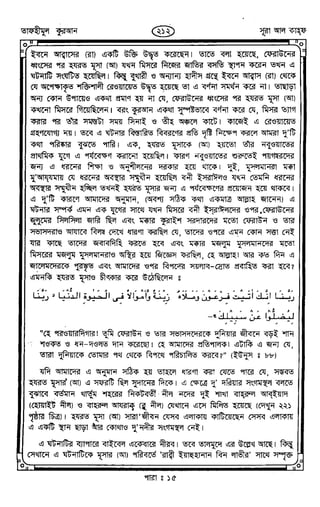 তাফহীমুল কুরআন ২১২ সূরা আল কাহফ
ইবনে আব্বাসের (রা) একটি উক্তি উদ্ধৃত করেছেন। তাতে বলা হয়েছে, ফেরাউনের
ধ্বংসের পর হযরত মূসা (আ) যখন মিসরে নিজের জাতির বসতি স্থাপন করেন তখন এ
ঘটনাটি সংঘটিত হয়েছিল। কিন্তু বুখারী ও অন্যান্য হাদীস গ্রন্থে ইবনে আব্বাস (রা) থেকে
যে অপেক্ষাকৃত শক্তিশালী রেওয়ায়েত উদ্ধৃত হয়েছে তা এ বর্ণনা সমর্থন করে না। তাছাড়া
অন্য কোন উপায়েও একথা প্রমাণ হয় না যে, ফেরাউনের ধ্বংসের পর হযরত মূসা (আ)
কখনো মিসরে গিয়েছিলেন। বরং কুরআন একথা সুস্পষ্টভাবে বর্ণনা করে যে, মিসর ত্যাগ
করার পর তাঁর সমস্তটা সময় সিনাই ও তীহ অঞ্চলে কাটে। কাজেই এ রেওয়ায়েত
গ্রহণযোগ্য নয়। তবে এ ঘটনার বিস্তারিত বিবরণের প্রতি দৃষ্টি নিক্ষেপ করলে আমরা দু'টি
কথা পরিষ্কার বুঝতে পারি। এক, হযরত মূসাকে (আ) হয়তো তাঁর নবুওয়াতের
প্রাথমিক যুগে এ পর্যবেক্ষণ করানো হয়েছিল। কারণ নবুওয়াতের শুরুতেই পয়গম্বরদের
জন্য এ ধরনের শিক্ষা ও অনুশীলনের দরকার হয়ে থাকে। দুই, মুসলমানরা মক্কা
মু'আয্যমায় যে ধরনের অবস্থার সম্মুখীন হয়েছিল বনী ইসরাঈলও যখন তেমনি ধরনের
অবস্থার সম্মুখীন হচ্ছিল তখনই হযরত মূসার জন্য এ পর্যবেক্ষণের প্রয়োজন হয়ে থাকবে।
এ দু'টি কারণে আমাদের অনুমান, (অবশ্য সঠিক কথা একমাত্র আল্লাহ জানেন) এ
ঘটনার সম্পর্ক এমন এক যুগের সাথে যখন মিসরে বনী ইসরাঈলদের ওপর ফেরাউনের
জুলুমের সিলসিলা জারি ছিল এবং মক্কার কুরাইশ সরদারদের মতো ফেরাউন ও তার
সভাসদরাও আযাবে বিলম্ব দেখে ধারণা করছিল যে, তাদের ওপরে এমন কোন সত্তা নেই
যার কাছে তাদের জবাবদিহি করতে হবে এবং মক্কার মজলুম মুসলমানদের মতো
মিসরের মজলুম মুসলমানরাও অস্থির হয়ে জিজ্ঞেস করছিল, হে আল্লাহ! আর কত দিন এ
জালেমদেরকে পুরস্কৃত এবং আমাদের ওপর বিপদের সয়লাব-স্রোত প্রবাহিত করা হবে?
এমনকি হযরত মূসাও চীৎকার করে উঠেছিলেন ঃ
رَبَّنَا إِنَّكَ آتَيْتَ فِرْعَوْنَ وَمَلَأَهُ زِينَةً وَأَمْوَالًا فِي الْحَيٰوةِ الدُّنْيَا رَبَّنَا
لِيُضِلُّوا عَنْ سَبِيلِكَ
"হে পরওয়ারদিগার! তুমি ফেরাউন ও তার সভাসদদেরকে দুনিয়ার জীবনে বড়ই শান
শওকত ও ধন-দওলত দান করেছো। হে আমাদের প্রতিপালক! এটাকি এ জন্য যে,
তারা দুনিয়াকে তোমার পথ থেকে বিপথে পরিচালিত করবে?" (ইউনুস ঃ ৮৮)
যদি আমাদের এ অনুমান সঠিক হয় তাহলে ধারণা করা যেতে পারে যে, সম্ভবত
হযরত মূসার (আ) এ সফরটি ছিল সুদানের দিকে। এ ক্ষেত্রে দু' দরিয়ার সংগমস্থল বলতে
বুঝাবে বর্তমান খার্তুম শহরের নিকটবর্তী নীল নদের দুই শাখা বাহরুল আবইয়াদ
(হোয়াইট নীল) ও বাহরুল আযরাক (ব্লু নীল) যেখানে এসে মিলিত হয়েছে (দেখুন ২২১
পৃষ্ঠার চিত্র)। হযরত মূসা (আ) সারা জীবন যেসব এলাকায় কাটিয়েছেন সেসব এলাকায়
এ একটি স্থান ছাড়া আর কোথাও দু'নদীর সংগমস্থল নেই।
এ ঘটনাটির ব্যাপারে বাইবেল একেবারে নীরব। তবে তালমুদে এর উল্লেখ আছে। কিন্তু
সেখানে এ ঘটনাটিকে মূসার (আ) পরিবর্তে 'রাব্বী ইয়াহহানান বিন লাভীর' সাথে সম্পৃক্ত
পারা ঃ ১৫